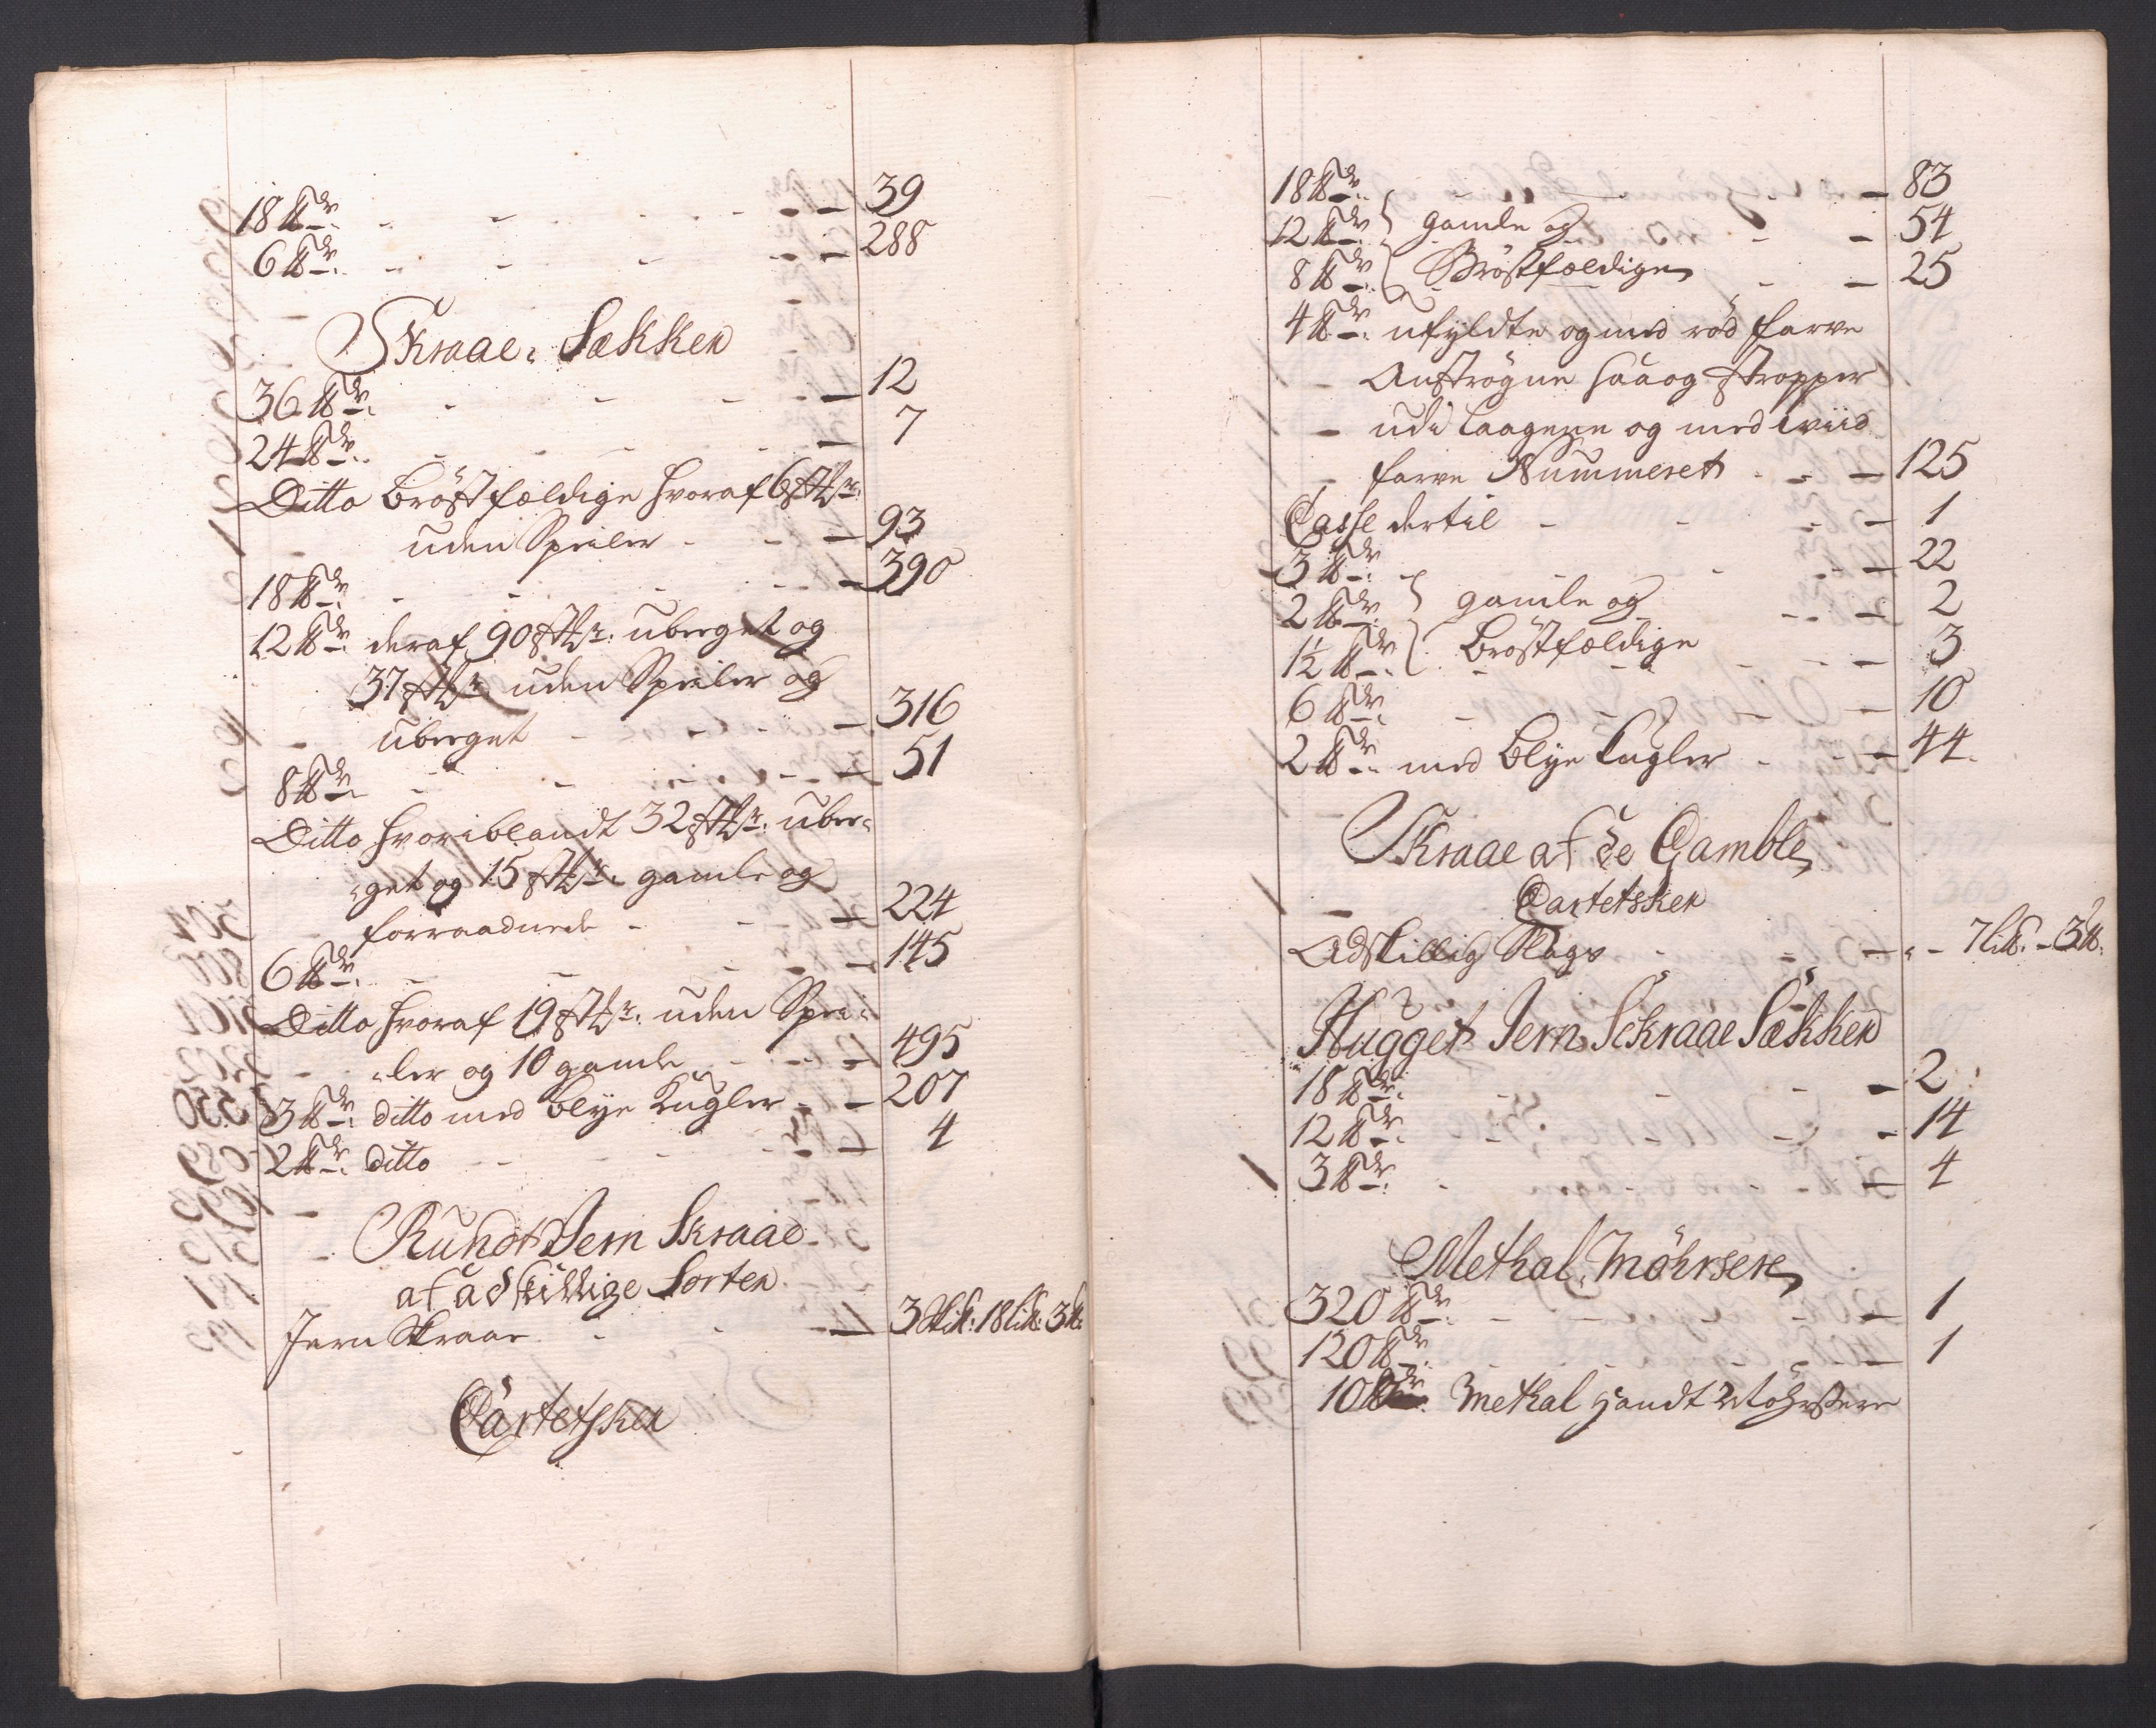 18 ℔dr. - - - - - 39
6 ℔dr. - - - - - 288
Skraae-Sækker
36 ℔dr. - - - - 12
24 ℔dr. - - - - 7
Ditto Bröstfældige hvoraf 6 stkr.
uden Speiler - - - 93
18 ℔dr. - - - - - 390
12 ℔dr. deraf 90 stkr. uberget og
37 stkr. uden Speiler og
uberget - - - - 316
8 ℔dr. - - - - 51
Ditto hvoriblandt 32 stkr. uber-
-get og 15 stkr. gamle og
forraadnede - - - 224
6 ℔dr. - - - - 145
Ditto hvoraf 19 stkr. uden Spei-
-ler og 10 gamle - - - 495
3 ℔dr. ditto med Blye Kugler - - 207
2 ℔dr. ditto - - - - 4
Rundt Jern Skraae
af adskillige Sorter
Jern Skraae - - - 3 Sk℔: 18 Li℔: 3 ℔:
Cartetsker
18 ℔dr. - - - - 83
12 ℔dr. } gamle og - - 54
8 ℔dr. } Bröstfældige - - 25
4 ℔dr. ufyldte og med röd farve
Anströgne saa og Stropper
udi Laagene og med hviid
farve Nummeret - - - 125
Casse dertil - - - - 1
3 ℔dr. - - - - 22
2 ℔dr. } gamle og - - - 2
1½ ℔dr. } Bröstfældige - - - 3
6 ℔dr. - - - - 10
2 ℔dr. med Blye Cugler - - - 44.
Skraae af de Gamble
Cartetsker
Adskillig Slags - - - - 7 Li℔. - 3 ℔.
Hugget Jern Sckraae Sækker
18 ℔dr. - - - - 2
12 ℔dr. - - - - - 14
3 ℔dr. - - - - 4
Methal, Möhrsere
320 ℔dr. - - - - - 1
120 ℔dr. - - - - - 1
10 ℔dr. Methal Handt Möhrsere